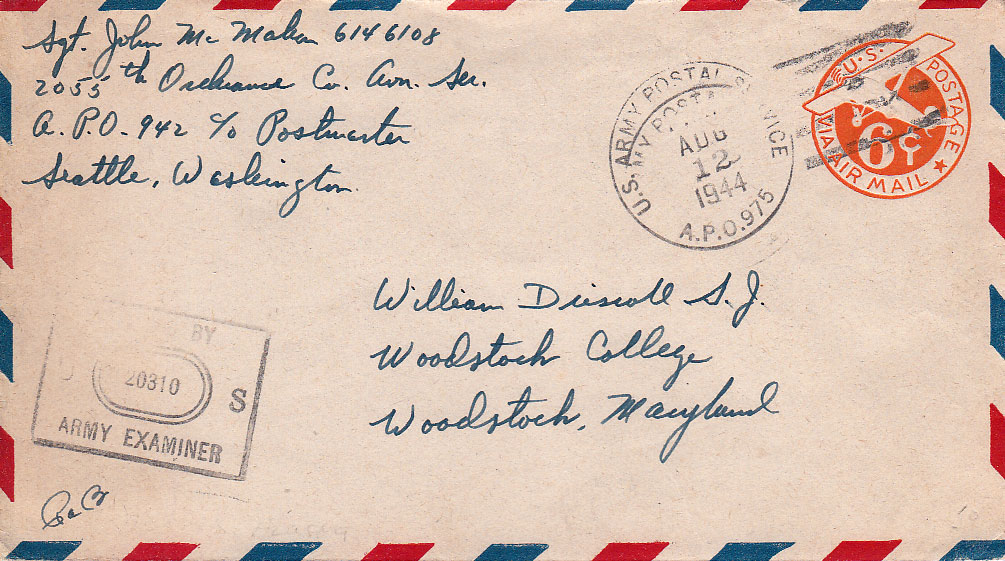 Sgt. John Mc Mahon 6146108
2055th Ordnance Co. Avn. Ser.
A.P.O. 942 c/o Postmaster
Seattle, Washington
U.S. ARMY POSTAL SERVICE
AUG
12
1944
A.P.O. 975
U.S. POSTAGE
6¢
VIA AIR MAIL
William Driscoll S.J.
Woodstock College
Woodstock, Maryland
BY
20310
S
ARMY EXAMINER